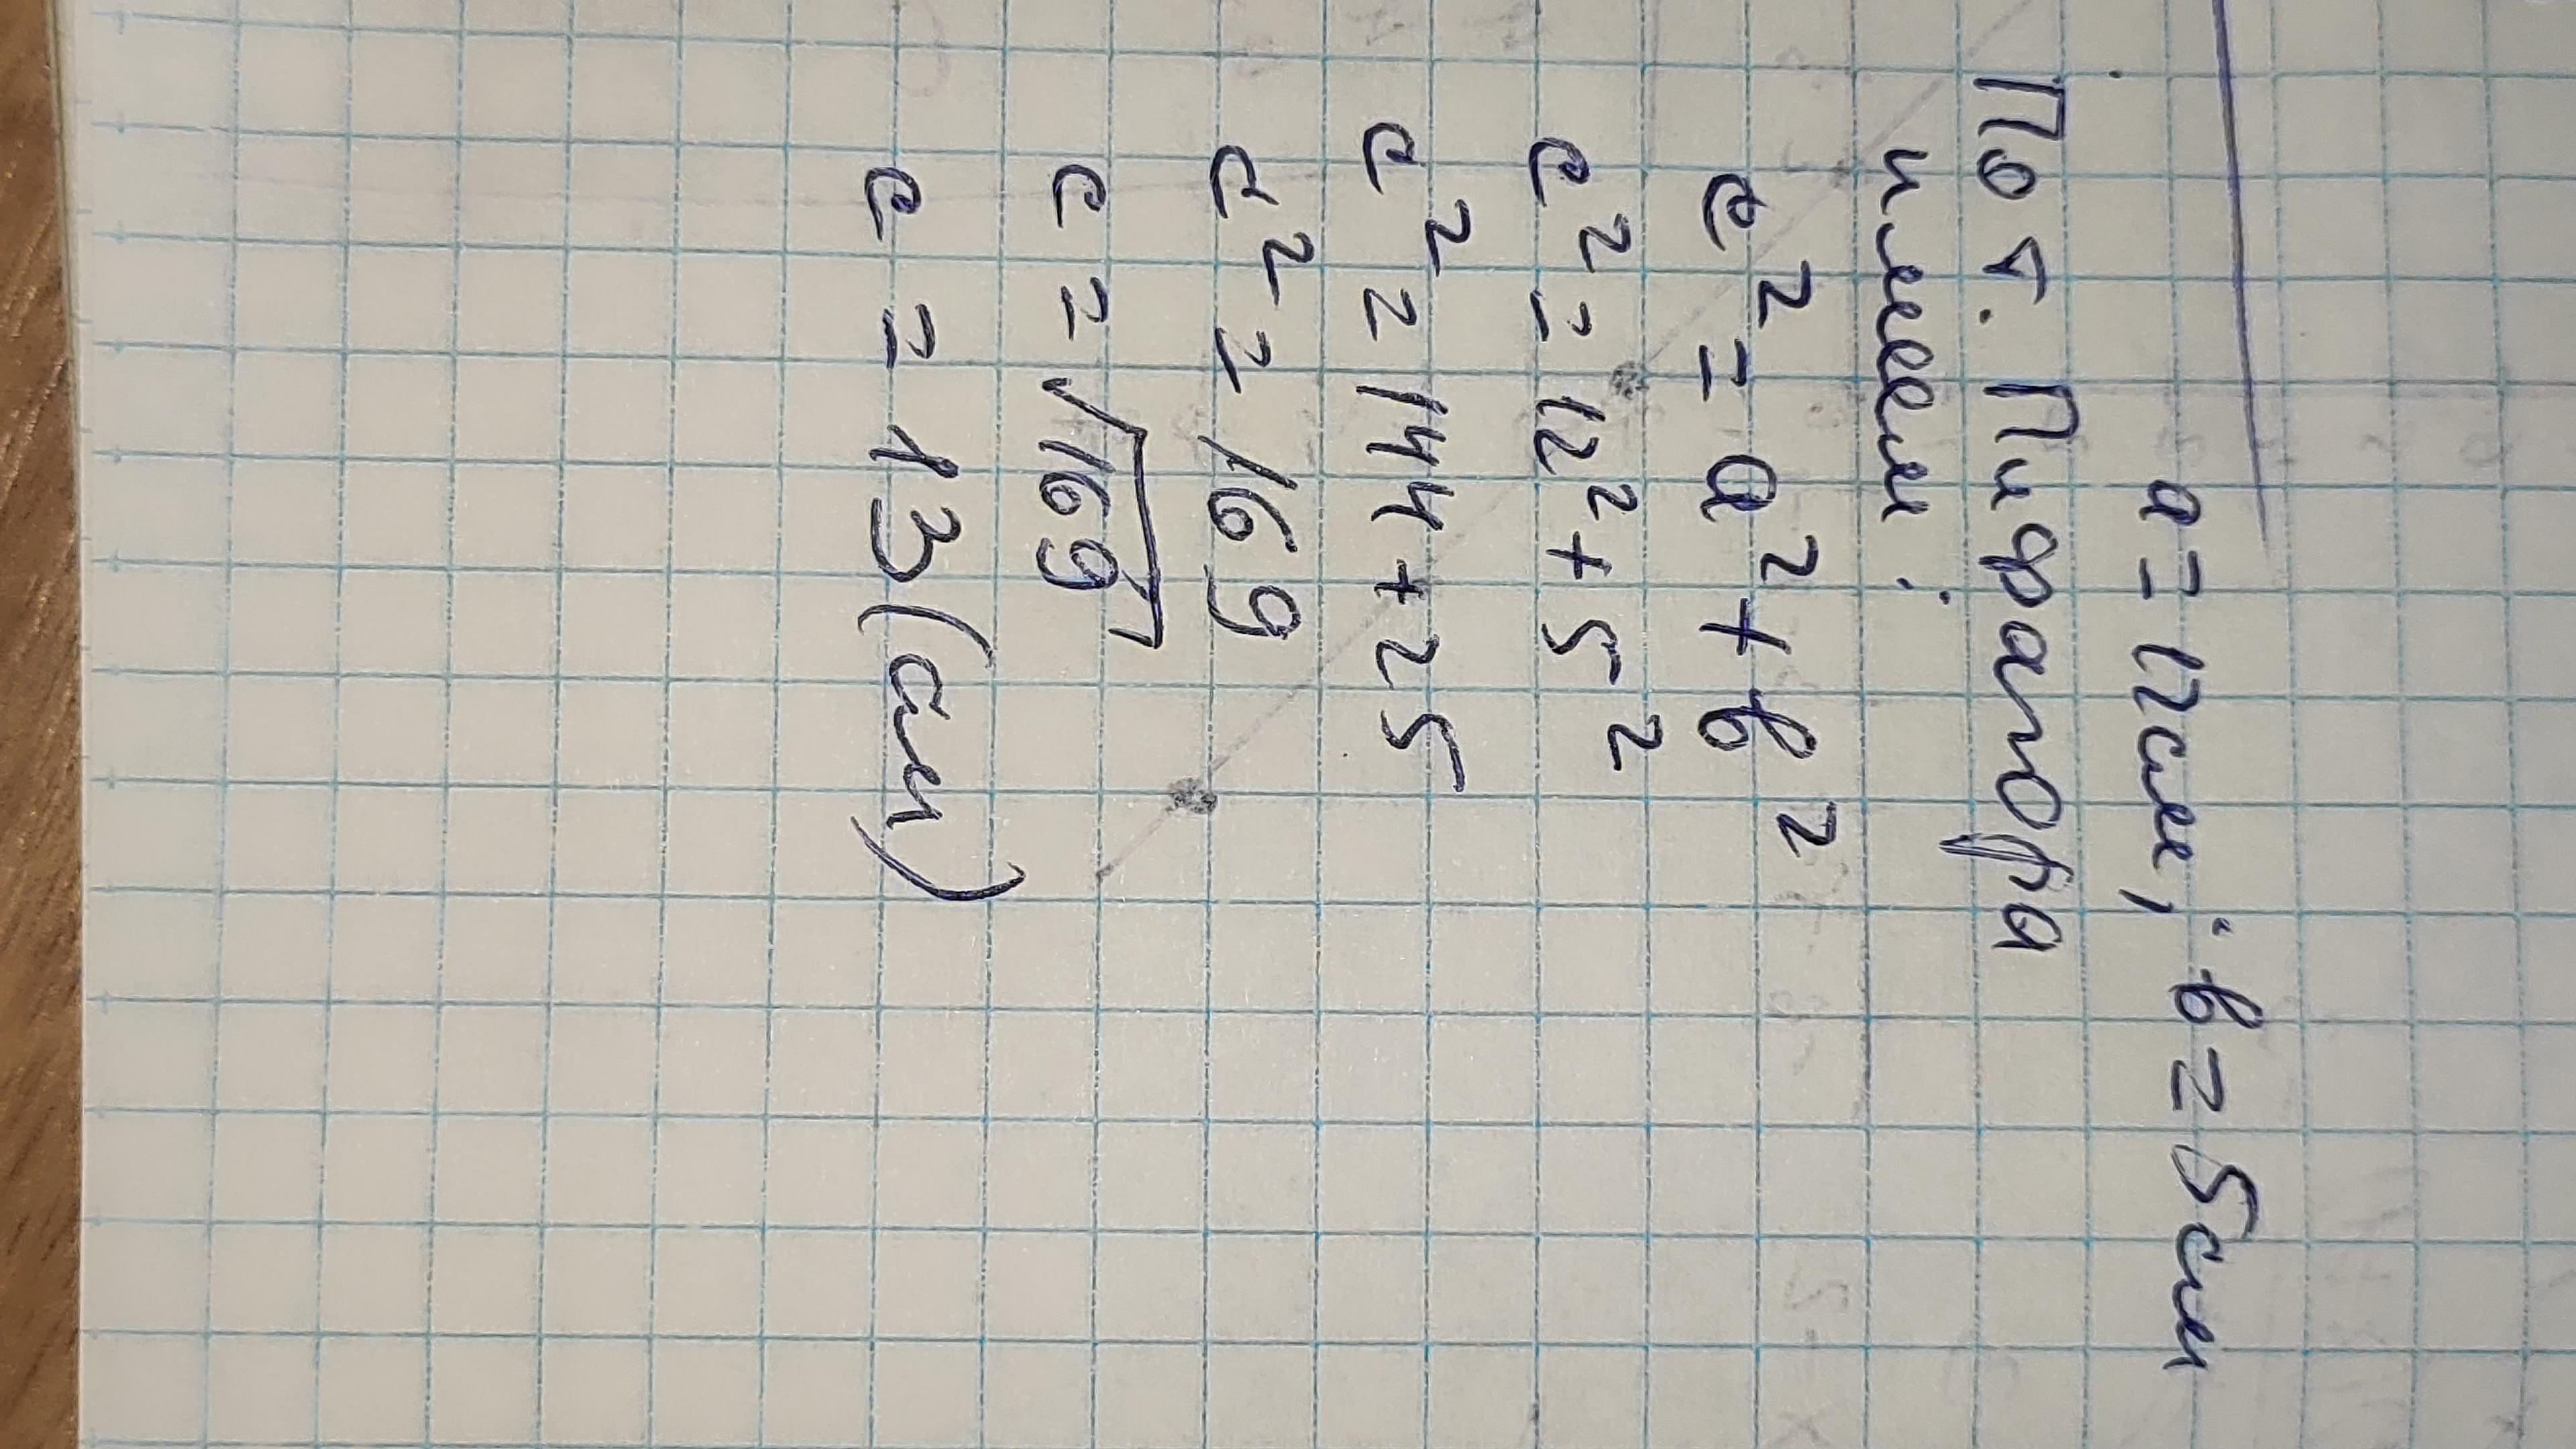 a = 12см; в = 5см
По т. Пифагора
имеем:
c² = a² + в²
c² = 12² + 5²
c² = 144 + 25
c² = 169
c = √169
c = 13 (см)